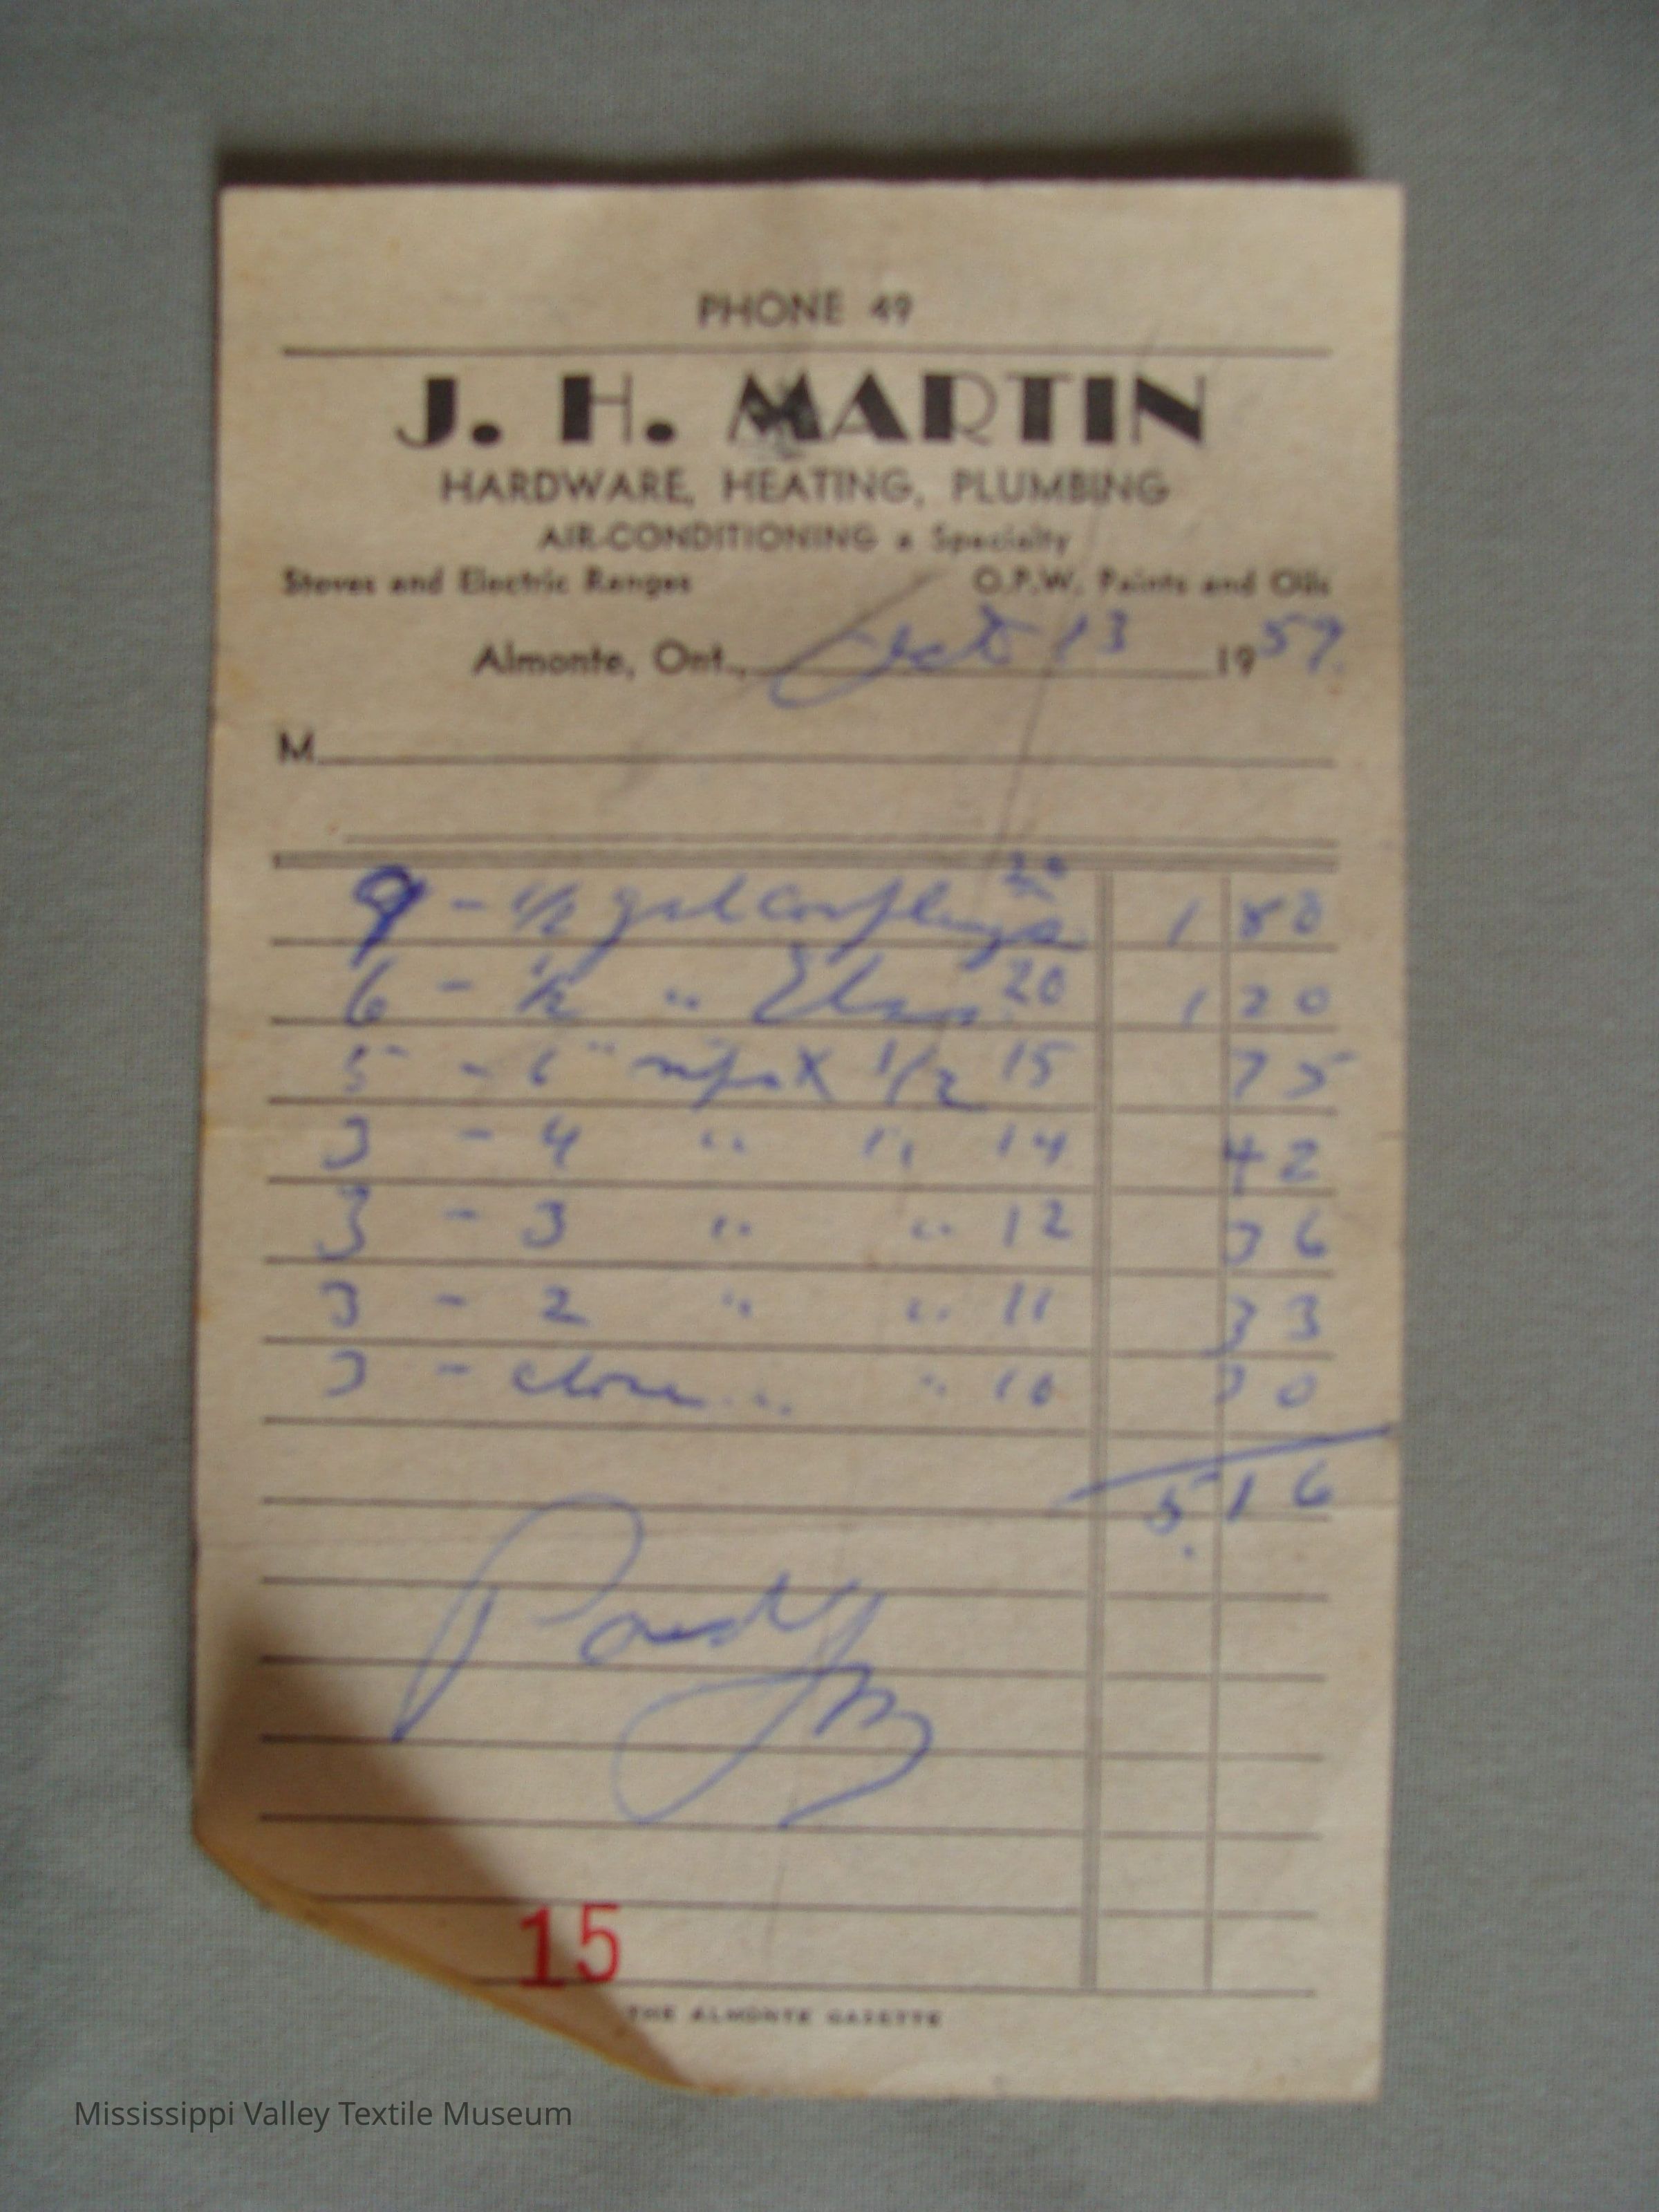 PHONE 49
J. H. MARTIN
HARDWARE, HEATING, PLUMBING
AIR-CONDITIONING a Specialty
Stoves and Electric Ranges O.P.W. Paints and Oils
Almonte, Ont., Oct 13 1957.
M
9 - 1/2 gal Couplings 20 1 80
6 - 1/2 " Elbows 20 1 20
5 - 6" nips X 1/2 15 75
3 - 4 " " 14 42
3 - 3 " " 12 36
3 - 2 " " 11 33
3 - close " " 10 30
5.16
Paid
15
THE ALMONTE GAZETTE
Mississippi Valley Textile Museum